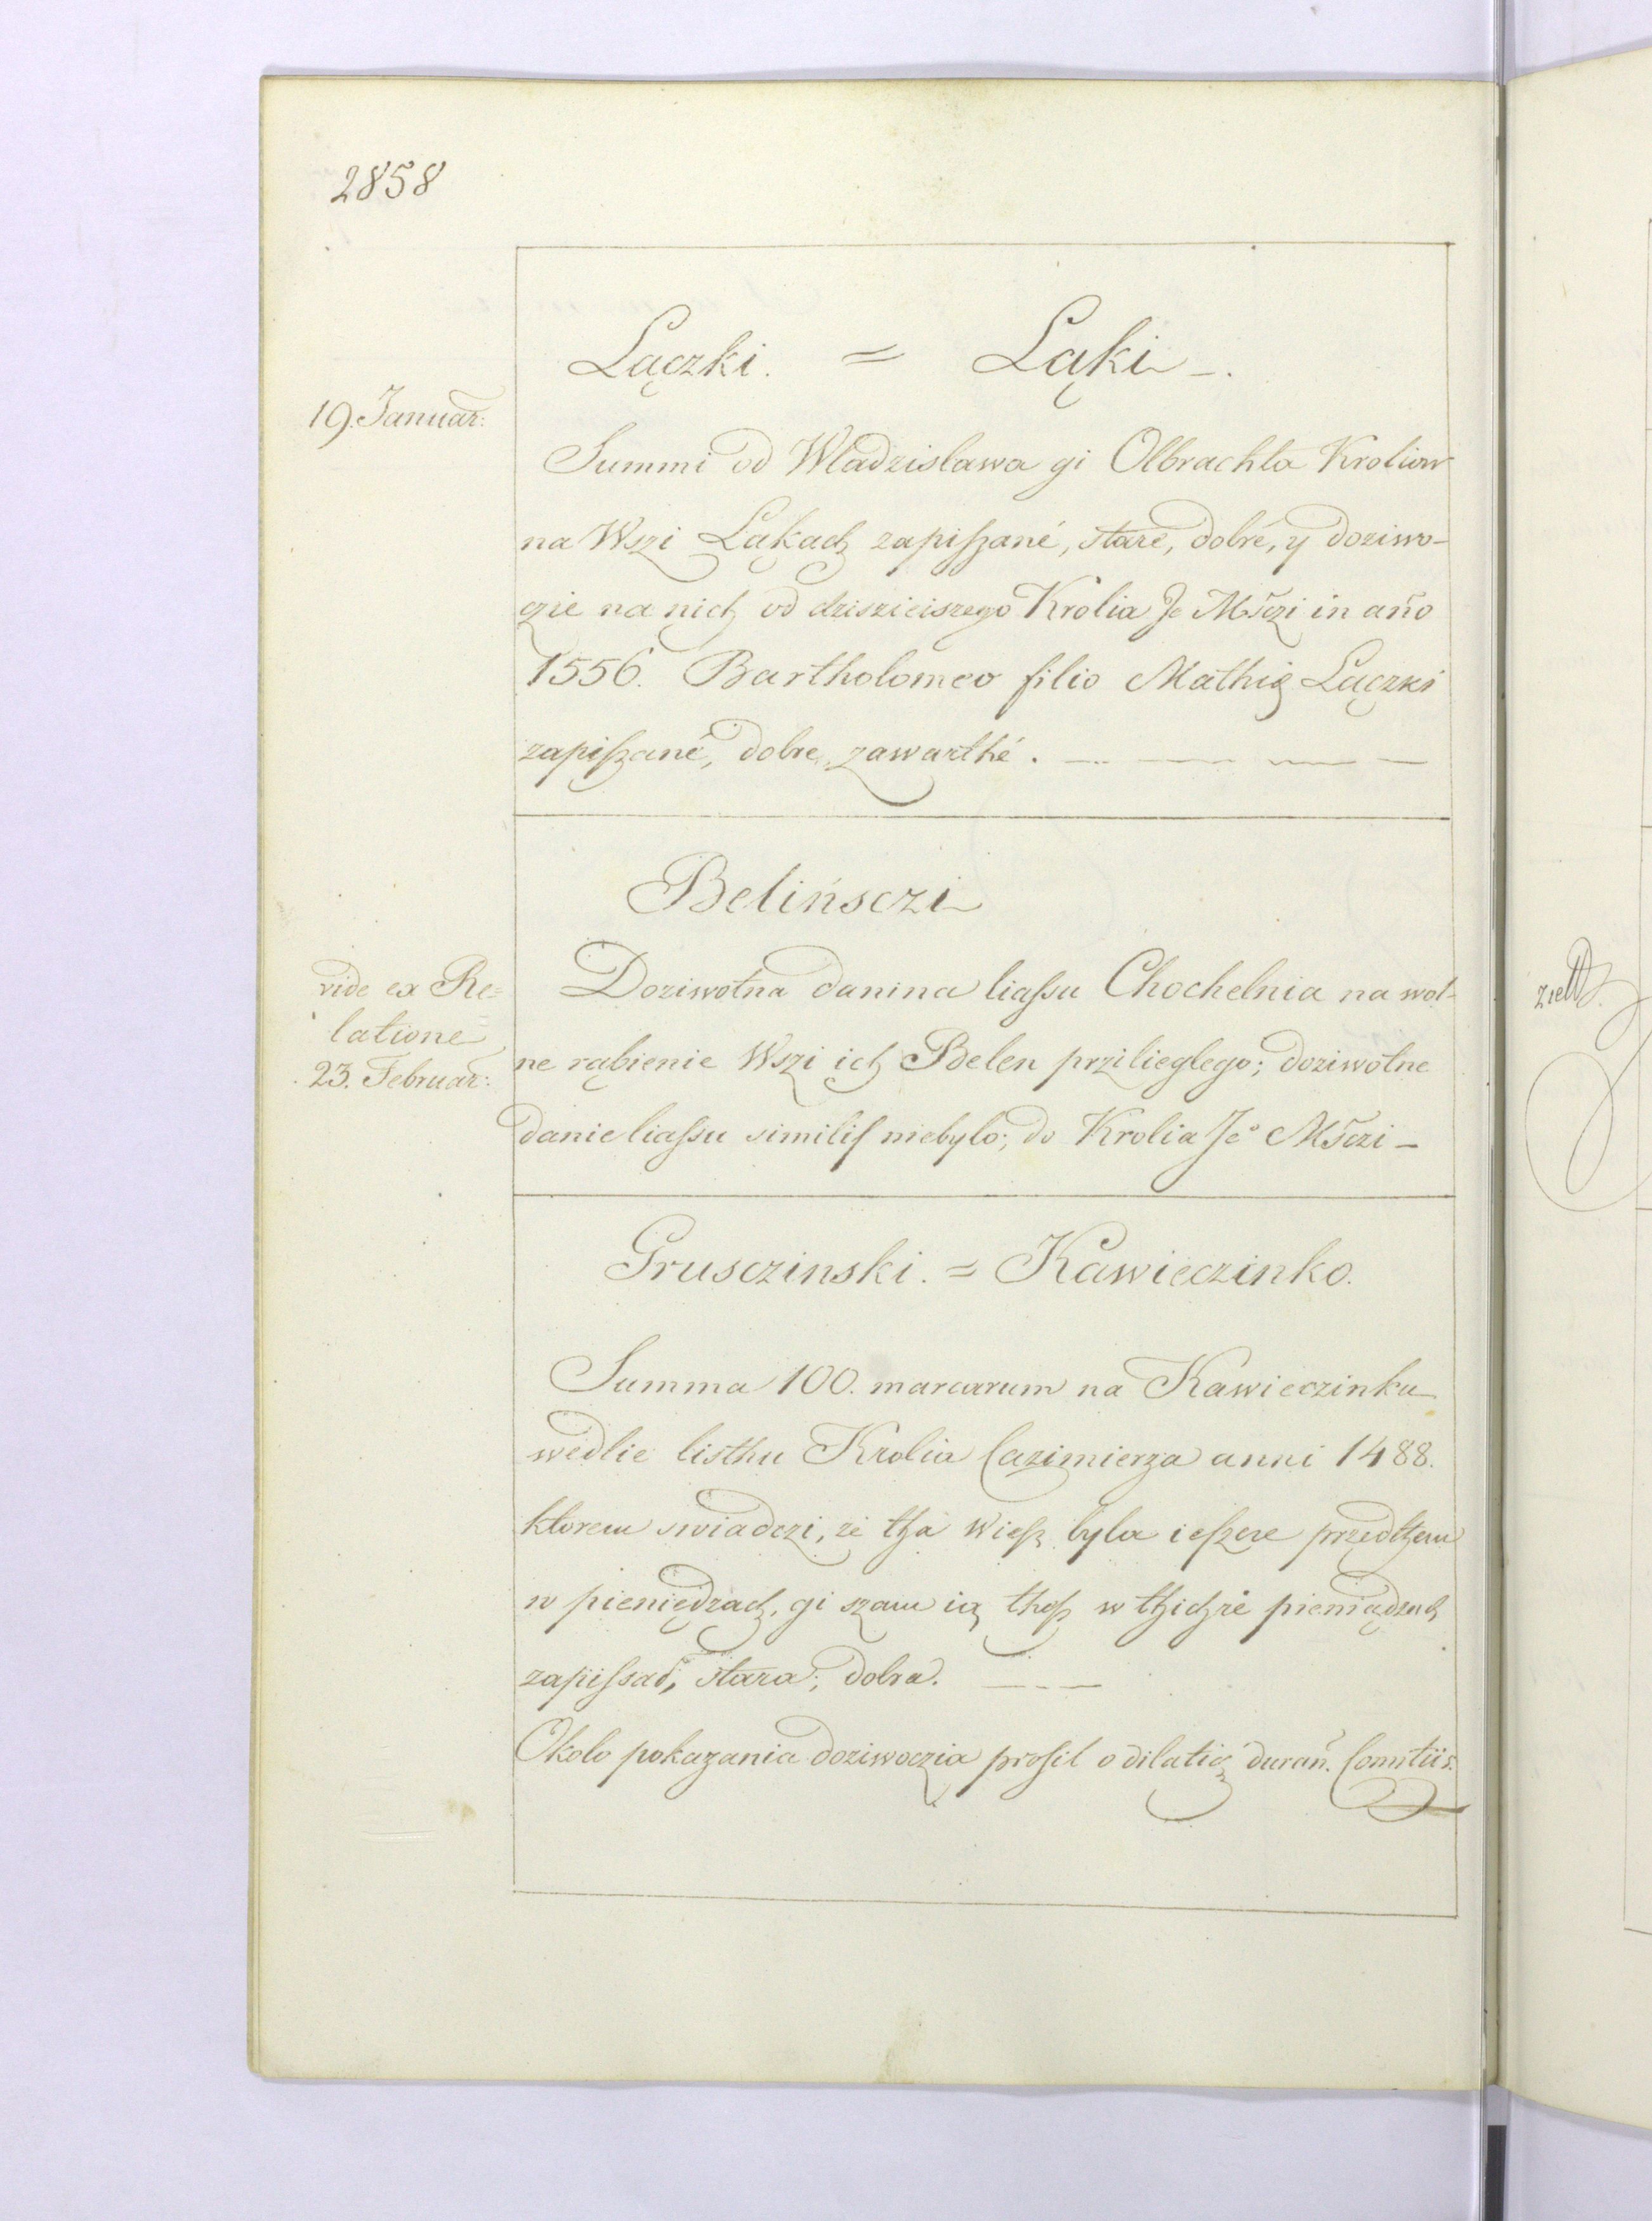 2858
Lączki. = Ląki.
19. Januar:
Summi od Wladzislawa gi Olbrachta Kroliow
na Wszi Ląkach zapiszané, staré, dobré, y doziwo-
czie na nich od dziszieiszego Krolia Je Mści in año
1556. Bartholomeo filio Mathię Lączki
zapiszané, dobre, zawarthé.
Belińsczi
vide ex Re=
latione
23. Februar:
Doziwotna danina liassu Chochelnia na wol-
ne rąbienie Wszi ich Belen przilieglego; doziwotne
danie liassu similis niebylo; do Krolia Jeo Mści
Grusczinski. = Kawieczinko.
Summa 100. marcarum na Kawieczinku
wedlie listhu Krolia Cazimierza anni 1488.
ktorem swiadczi, ze tha wiesz byla ieszcze przedthem
w pieniędzach, gi szam ią thesz w thichże pieniądzach
zapissal, stara; dobra.
Okolo pokazania doziwoczia prosil o dilatią durañ. Comitiis.